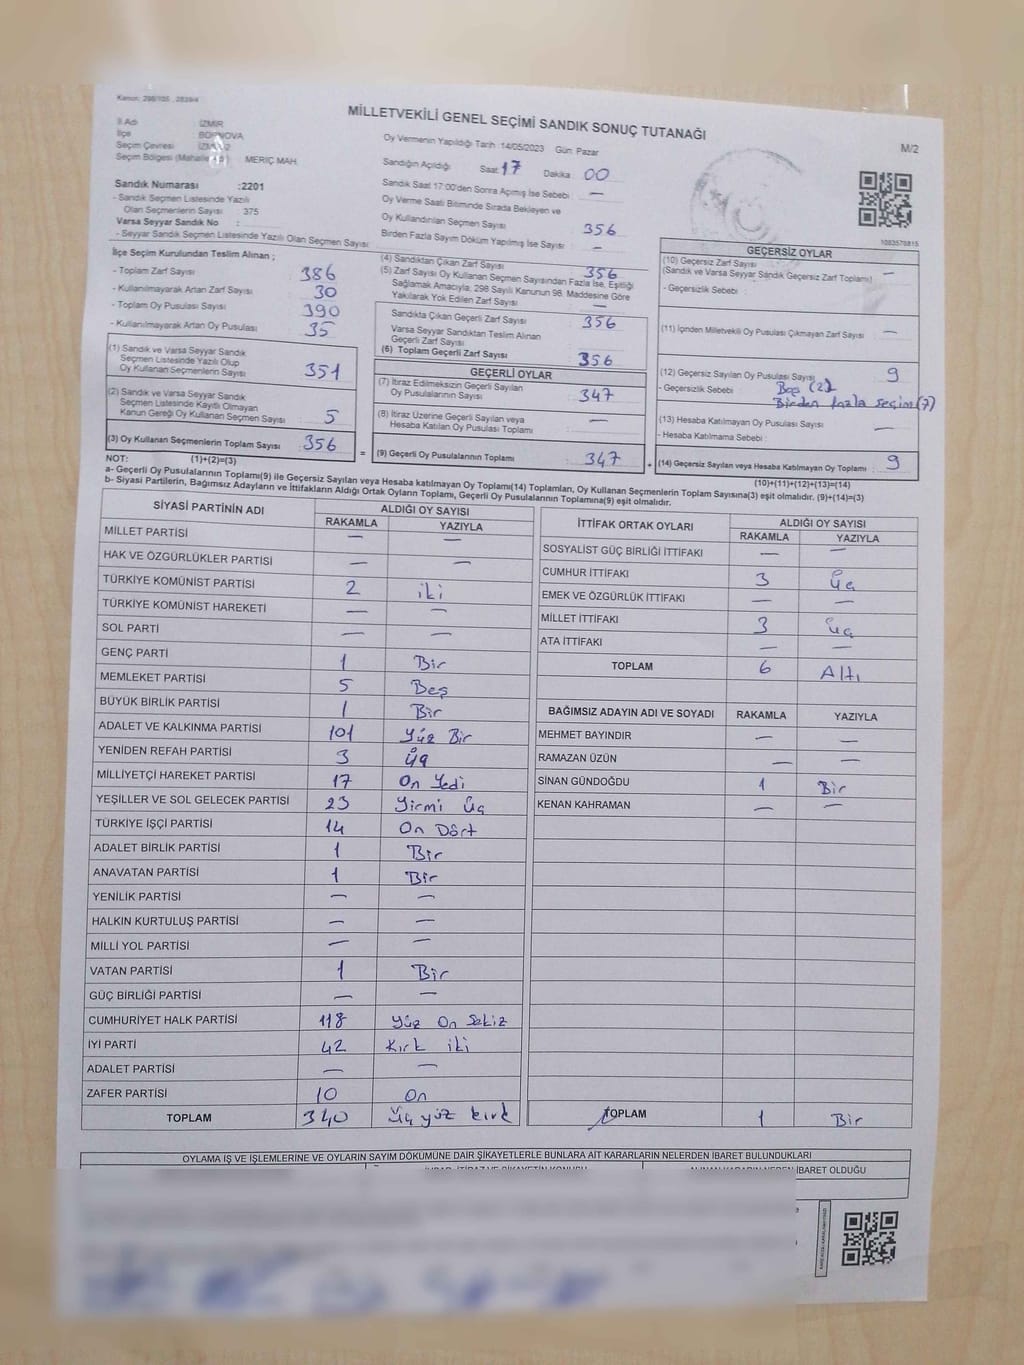 Kanun: 298/105 , 2839/4
MİLLETVEKİLİ GENEL SEÇİMİ SANDIK SONUÇ TUTANAĞI
M/2
İl Adı : İZMİR
İlçe : BORNOVA
Seçim Çevresi : İZMİR 2
Seçim Bölgesi (Mahalle : MERİÇ MAH.
Sandık Numarası :2201
- Sandık Seçmen Listesinde Yazılı
Olan Seçmenlerin Sayısı : 375
Varsa Seyyar Sandık No :
- Seyyar Sandık Seçmen Listesinde Yazılı Olan Seçmen Sayısı
Oy Vermenin Yapıldığı Tarih :14/05/2023 Gün: Pazar
Sandığın Açıldığı Saat 17 Dakika 00
Sandık Saat 17:00'den Sonra Açılmış İse Sebebi : —
Oy Verme Saati Bitiminde Sırada Bekleyen ve
Oy Kullandırılan Seçmen Sayısı 356
Birden Fazla Sayım Döküm Yapılmış İse Sayısı —
1083570815
İlçe Seçim Kurulundan Teslim Alınan ;
- Toplam Zarf Sayısı : 386
- Kullanılmayarak Artan Zarf Sayısı : 30
- Toplam Oy Pusulası Sayısı : 390
- Kullanılmayarak Artan Oy Pusulası : 35
(1) Sandık ve Varsa Seyyar Sandık
Seçmen Listesinde Yazılı Olup
Oy Kullanan Seçmenlerin Sayısı : 351
(2) Sandık ve Varsa Seyyar Sandık
Seçmen Listesinde Kayıtlı Olmayan
Kanun Gereği Oy Kullanan Seçmen Sayısı : 5
(3) Oy Kullanan Seçmenlerin Toplam Sayısı : 356
(4) Sandıktan Çıkan Zarf Sayısı : 356
(5) Zarf Sayısı Oy Kullanan Seçmen Sayısından Fazla İse, Eşitliği
Sağlamak Amacıyla; 298 Sayılı Kanunun 98. Maddesine Göre
Yakılarak Yok Edilen Zarf Sayısı : —
Sandıkta Çıkan Geçerli Zarf Sayısı : 356
Varsa Seyyar Sandıktan Teslim Alınan
Geçerli Zarf Sayısı
(6) Toplam Geçerli Zarf Sayısı 356
GEÇERLİ OYLAR
(7) İtiraz Edilmeksizin Geçerli Sayılan
Oy Pusulasının Sayısı : 347
(8) İtiraz Üzerine Geçerli Sayılan veya
Hesaba Katılan Oy Pusulası Toplamı : —
= (9) Geçerli Oy Pusulalarının Toplamı : 347
GEÇERSİZ OYLAR
(10) Geçersiz Zarf Sayısı : —
(Sandık ve Varsa Seyyar Sandık Geçersiz Zarf Toplamı)
- Geçersizlik Sebebi :
(11) İçinden Milletvekili Oy Pusulası Çıkmayan Zarf Sayısı : —
(12) Geçersiz Sayılan Oy Pusulası Sayısı : 9
- Geçersizlik Sebebi : Boş (2)
Birden fazla seçim (7)
(13) Hesaba Katılmayan Oy Pusulası Sayısı : —
- Hesaba Katılmama Sebebi :
+ (14) Geçersiz Sayılan veya Hesaba Katılmayan Oy Toplamı : 9
NOT: (1)+(2)=(3)
(10)+(11)+(12)+(13)=(14)
a- Geçerli Oy Pusulalarının Toplamı(9) ile Geçersiz Sayılan veya Hesaba katılmayan Oy Toplamı(14) Toplamları, Oy Kullanan Seçmenlerin Toplam Sayısına(3) eşit olmalıdır. (9)+(14)=(3)
b- Siyasi Partilerin, Bağımsız Adayların ve İttifakların Aldığı Ortak Oyların Toplamı, Geçerli Oy Pusulalarının Toplamına(9) eşit olmalıdır.
SİYASİ PARTİNİN ADI ALDIĞI OY SAYISI
RAKAMLA YAZIYLA
MİLLET PARTİSİ — —
HAK VE ÖZGÜRLÜKLER PARTİSİ — —
TÜRKİYE KOMÜNİST PARTİSİ 2 iki
TÜRKİYE KOMÜNİST HAREKETİ — —
SOL PARTİ — —
GENÇ PARTİ 1 Bir
MEMLEKET PARTİSİ 5 Beş
BÜYÜK BİRLİK PARTİSİ 1 Bir
ADALET VE KALKINMA PARTİSİ 101 Yüz Bir
YENİDEN REFAH PARTİSİ 3 Üç
MİLLİYETÇİ HAREKET PARTİSİ 17 On Yedi
YEŞİLLER VE SOL GELECEK PARTİSİ 23 Yirmi Üç
TÜRKİYE İŞÇİ PARTİSİ 14 On Dört
ADALET BİRLİK PARTİSİ 1 Bir
ANAVATAN PARTİSİ 1 Bir
YENİLİK PARTİSİ — —
HALKIN KURTULUŞ PARTİSİ — —
MİLLİ YOL PARTİSİ — —
VATAN PARTİSİ 1 Bir
GÜÇ BİRLİĞİ PARTİSİ — —
CUMHURİYET HALK PARTİSİ 118 Yüz On Sekiz
İYİ PARTİ 42 Kırk iki
ADALET PARTİSİ — —
ZAFER PARTİSİ 10 On
TOPLAM 340 Üç yüz kırk
İTTİFAK ORTAK OYLARI ALDIĞI OY SAYISI
RAKAMLA YAZIYLA
SOSYALİST GÜÇ BİRLİĞİ İTTİFAKI — —
CUMHUR İTTİFAKI 3 Üç
EMEK VE ÖZGÜRLÜK İTTİFAKI — —
MİLLET İTTİFAKI 3 Üç
ATA İTTİFAKI — —
TOPLAM 6 Altı
BAĞIMSIZ ADAYIN ADI VE SOYADI RAKAMLA YAZIYLA
MEHMET BAYINDIR — —
RAMAZAN ÜZÜN — —
SİNAN GÜNDOĞDU 1 Bir
KENAN KAHRAMAN — —
TOPLAM 1 Bir
OYLAMA İŞ VE İŞLEMLERİNE VE OYLARIN SAYIM DÖKÜMÜNE DAİR ŞİKAYETLERLE BUNLARA AİT KARARLARIN NELERDEN İBARET BULUNDUKLARI
İBARET OLDUĞU